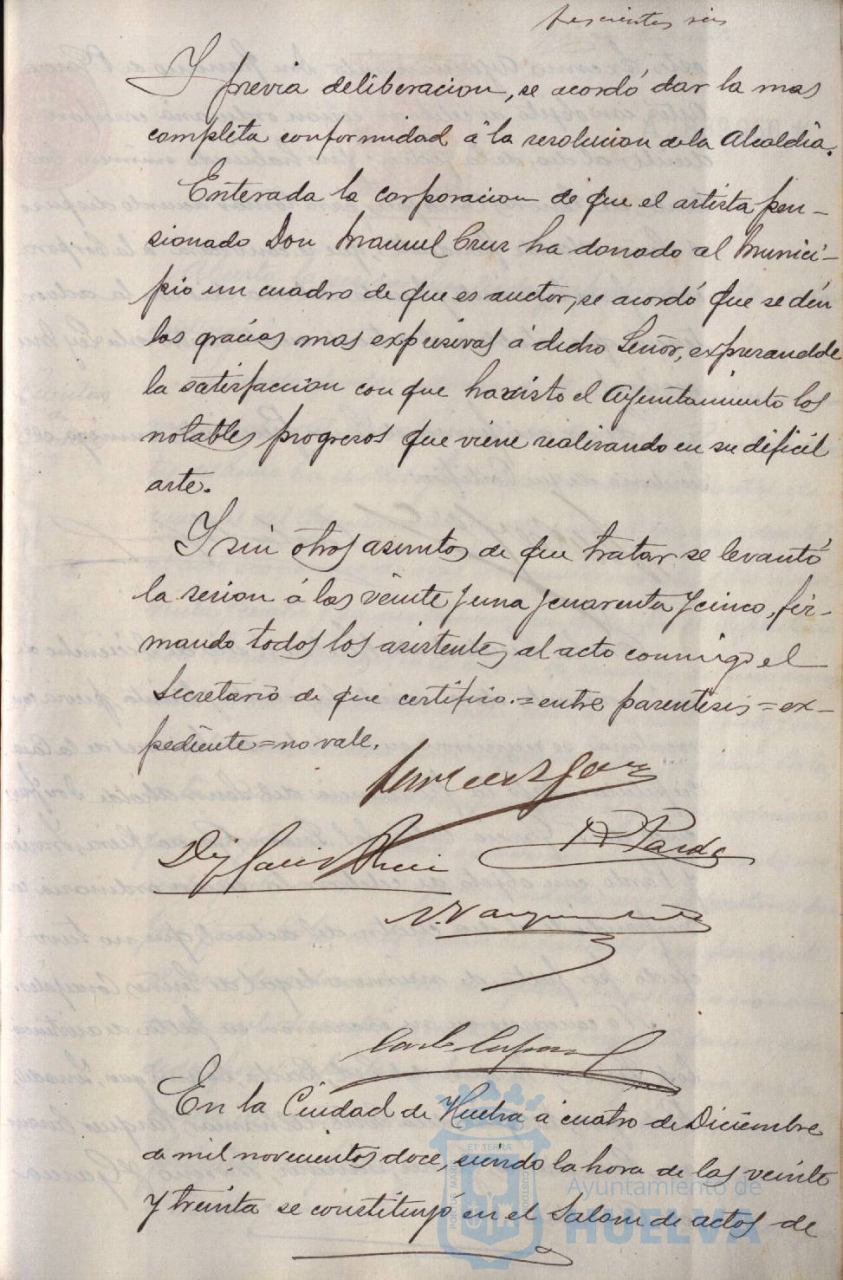 trescientos seis
Y previa deliberacion, se acordó dar la mas
completa conformidad á la resolucion de la Alcaldia.
Enterada la corporacion de que el artista pen-
sionado Don Manuel Cruz ha donado al Munici-
pio un cuadro de que es auctor, se acordó que se dén
las gracias mas expresivas á dicho Señor, expresandole
la satisfaccion con que ha visto el Ayuntamiento los
notables progresos que viene realizando en su dificil
arte.
Y sin otros asuntos de que tratar se levantó
la sesion á las veinte y una y cuarenta y cinco, fir-
mando todos los asistentes al acto conmigo el
Secretario de que certifico.=entre parentesis=ex-
pediente=no vale.
Pardo
En la Ciudad de Huelva á cuatro de Diciembre
de mil novecientos doce, siendo la hora de las veinte
y treinta se constituyó en el Salon de actos de
Ayuntamiento de
HUELVA